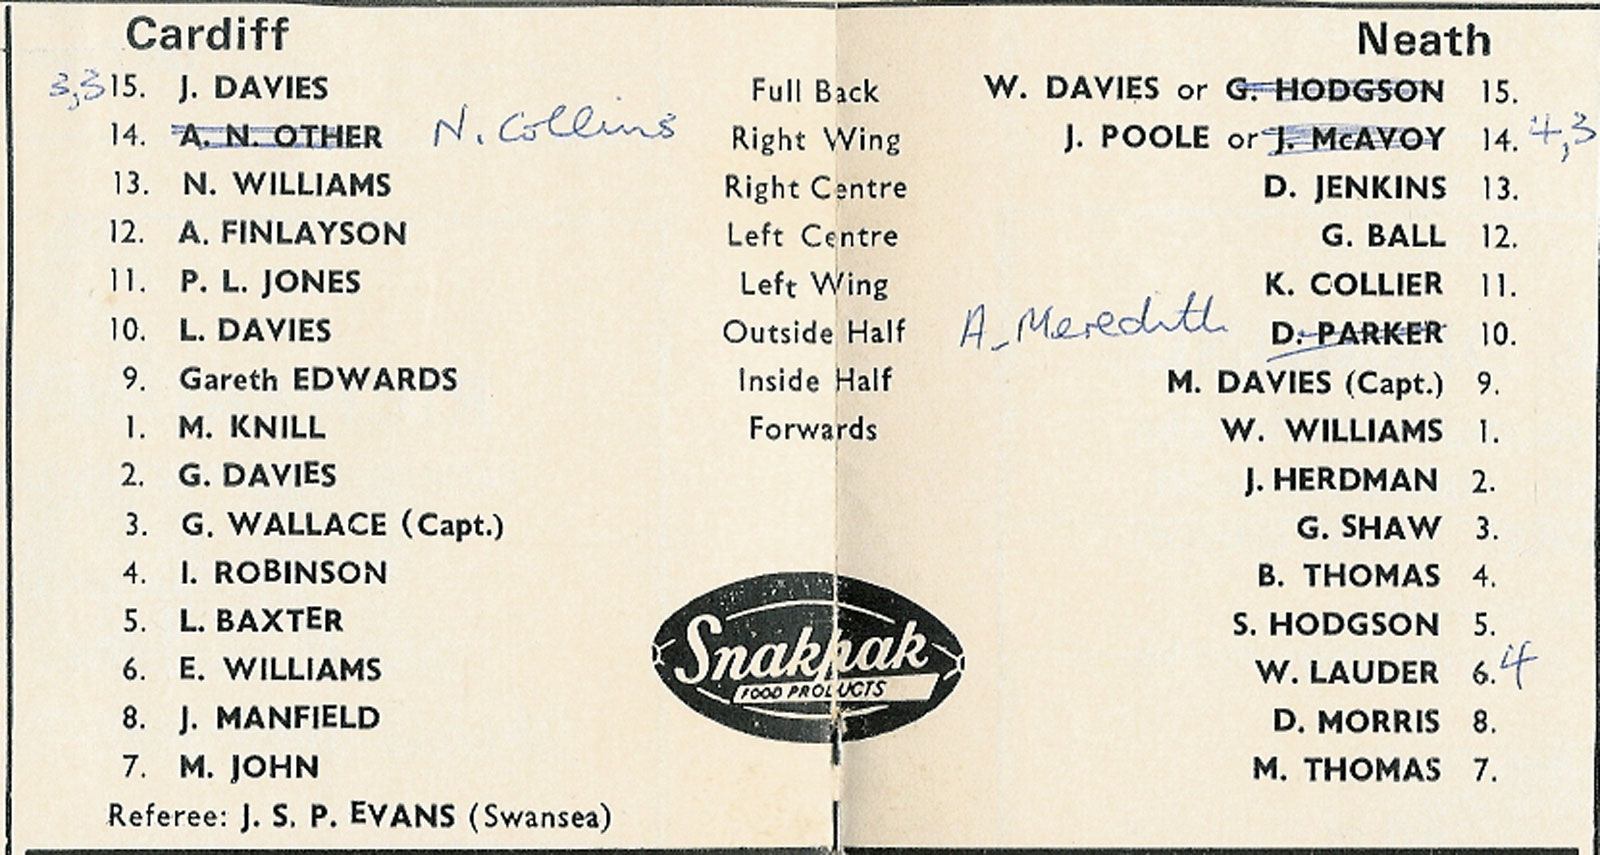 Cardiff Neath
3,3 15. J. DAVIES Full Back W. DAVIES or G. HODGSON 15.
14. A. N. OTHER N. Collins Right Wing J. POOLE or J. McAVOY 14. 4,3
13. N. WILLIAMS Right Centre D. JENKINS 13.
12. A. FINLAYSON Left Centre G. BALL 12.
11. P. L. JONES Left Wing K. COLLIER 11.
10. L. DAVIES Outside Half A. Meredith D. PARKER 10.
9. Gareth EDWARDS Inside Half M. DAVIES (Capt.) 9.
1. M. KNILL Forwards W. WILLIAMS 1.
2. G. DAVIES J. HERDMAN 2.
3. G. WALLACE (Capt.) G. SHAW 3.
4. I. ROBINSON B. THOMAS 4.
5. L. BAXTER S. HODGSON 5.
6. E. WILLIAMS W. LAUDER 6. 4
8. J. MANFIELD D. MORRIS 8.
7. M. JOHN M. THOMAS 7.
Snakpak
FOOD PRODUCTS
Referee: J. S. P. EVANS (Swansea)